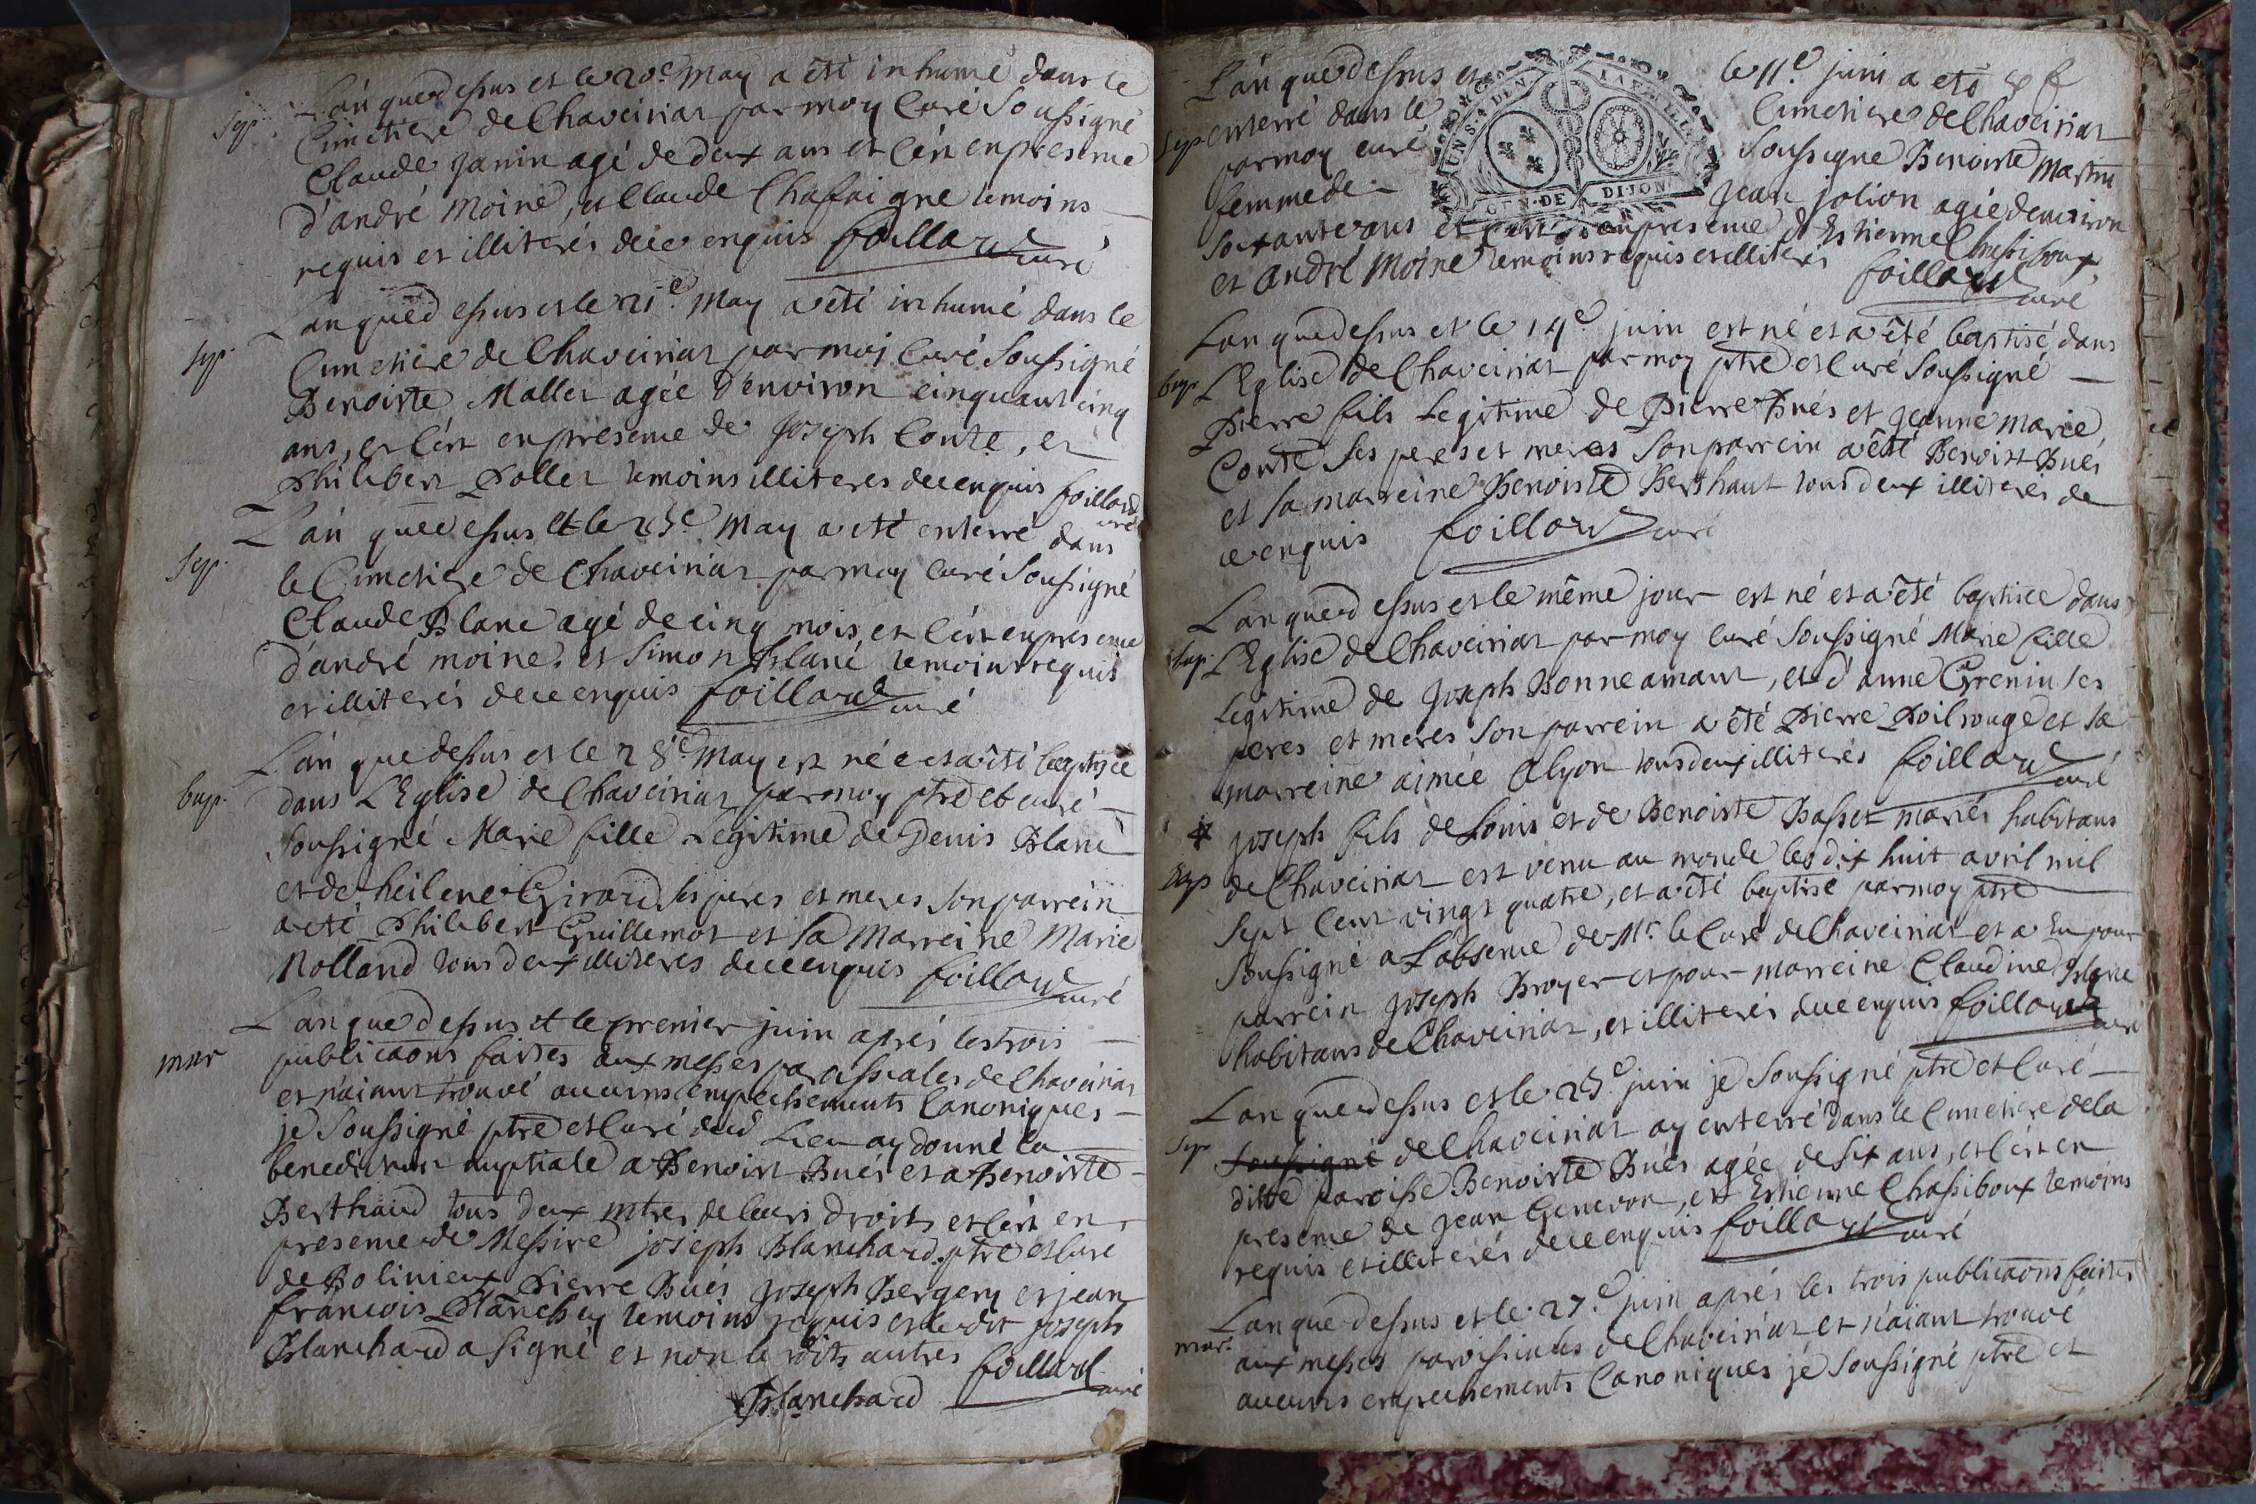 L'an que dessus et le 20e May a êté inhumé dans le
Sep. Cimetiere de Chaveiriat par moy Curé Soussigné
Claude Janin agé de deux ans et c'ért en presence
d'andré Moine, et Claude Chafaigne temoins
requis et illiterés de ce enquis foillard curé
L'an que dessus et le 21e May a êté inhumé dans le
Sep. Cimetiere de Chaveiriat par moi Curé Soussigné
Benoiste Mallet agée d'environ cinquant cinq
ans, et c'ért en presence de Joseph Conte, et
Philibert Pollet temoins illiteres de ce enquis foillard
curé
L'an que dessus et le 25e May a eté enterré dans
Sep. le Cimetiere de Chaveiriat par moy curé Soussigné
Claude Blanc agé de cinq mois et c'ért en presence
d'andré moine. et Simon Blanc temoins requis
et illiterés de ce enquis foillard curé
L'an que dessus et le 28e May est née et a êté baptisée
bap. dans L'Eglise de Chaveiriat par moy ptre et curé
Soussigné Marie fille Legitime de Denis Blanc
et de heilene Girard ses peres et meres Son parrein
a eté Philibert Guillemot et sa Marreine Marie
Rolland tous deux illiteres de ce enquis foillard curé
L'an que dessus et le premier juin aprés les trois
mar publicaons faites aux messes paroissiales de Chaveiriat
et n'aiant trouvé aucuns empechements Canoniques
je Soussigné ptre et Curé dud Lieu ay donné la
benediction nuptiale a Benoist Bués et a Benoiste
Berthaud tous deux mtres de leurs droits et c'ért en
presence de Messire joseph Blanchard ptre et curé
de Polinieux Pierre Bués Joseph Bergery et jean
francois Planchey temoins requis et ledit joseph
Blanchard a Signé et non le dits autres foillard curé
Blanchard
L'an que dessus et le 11e juin a eté
Sep. enterré dans le Cimetiere de Chaveiriat
par moy curé Soussigné Benoiste
femme de Jean jolion agée d'environ
soixante ans et c'ért en presence d'Estienne Chassiboux
et André Moine temoins requis et illiterés foillard curé
DIJON
L'an que dessus et le 14e juin est né et a êté baptisé dans
bap. L'Eglise de Chaveiriat par moy ptre et Curé Soussigné
Pierre fils Legitime de Pierre Bués et Jeanne Marie
Conte Ses peres et meres Son parrein a êté Benoist Bués
et sa marreine Benoiste Berthaut tous deux illiterés de
ce enquis foillard curé
L'an que dessus et le même jour est né et a êté baptisée dans
bap. L'Eglise de Chaveiriat par moy curé Soussigné Marie fille
Legitime de Joseph Bonneamant, et d'anne Grenin ses
peres et meres Son parrein a êté Pierre Poilrouge et sa
marreine aimée Alyon tous deux illiterés foillard curé
joseph fils de Louis et de Benoiste Basset mariés habitans
Bap de Chaveiriat est venu au monde le dix huit avril mil
Sept Cent vingt quatre, et a êté baptisé par moy ptre
Soussigné a L'absence de Mr. le Curé de Chaveiriat et a Eu pour
parrein joseph Broyer et pour marreine Claudine Blanc
habitans de Chaveiriat, et illiterés de ce enquis foillard curé
L'an que dessus et le 25e juin je Soussigné ptre et Curé
Sep Soussigné de Chaveiriat ay enterré dans le Cimetiere de la
ditte paroisse Benoiste Bués agée de Six ans, et c'ért en
presence de jean Genevon, et Estienne Chassiboux temoins
requis et illiterés de ce enquis foillard curé
L'an que dessus et le 27e juin aprés les trois publicaons faites
mar. aux messes paroissiales de Chaveiriat et n'aiant trouvé
aucuns empechements Canoniques je Soussigné ptre et